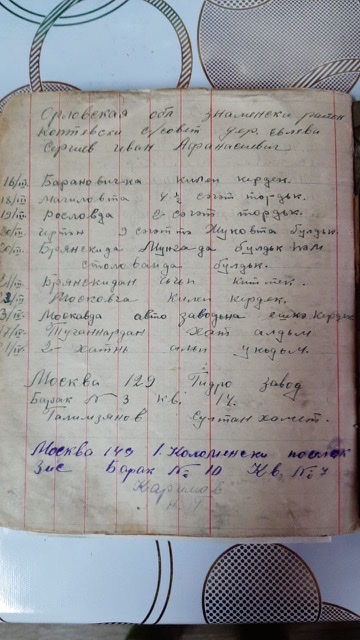 Орловская обл знаменски район
Коптевски с/совет дер.
Сергиев иван Афанасиевич
16/III Барановичиха килеп кердек.
18/III Магиловта 4 ½ сәгәт тордык.
19/III Рославда 2 сәгәт тордык.
20/III иртән 9 сәгәттә Жуковта булдык.
Брянскида Мунчада булдык һәм
столовайда булдык.
Брянскидан чыгып киттек.
Московга килеп кердек.
3/IV Москавда авто заводына эшкә кердек
17/IV Туганнардан хат алдым
2- хатны алып укыдым.
Москва 129 Гидро завод
Барак № 3 кв. 14.
Галимзянов Султан хамет.
Москва 149 1. Коломенски поселок
Зис Барак № 10 Кв № 7
Каримов